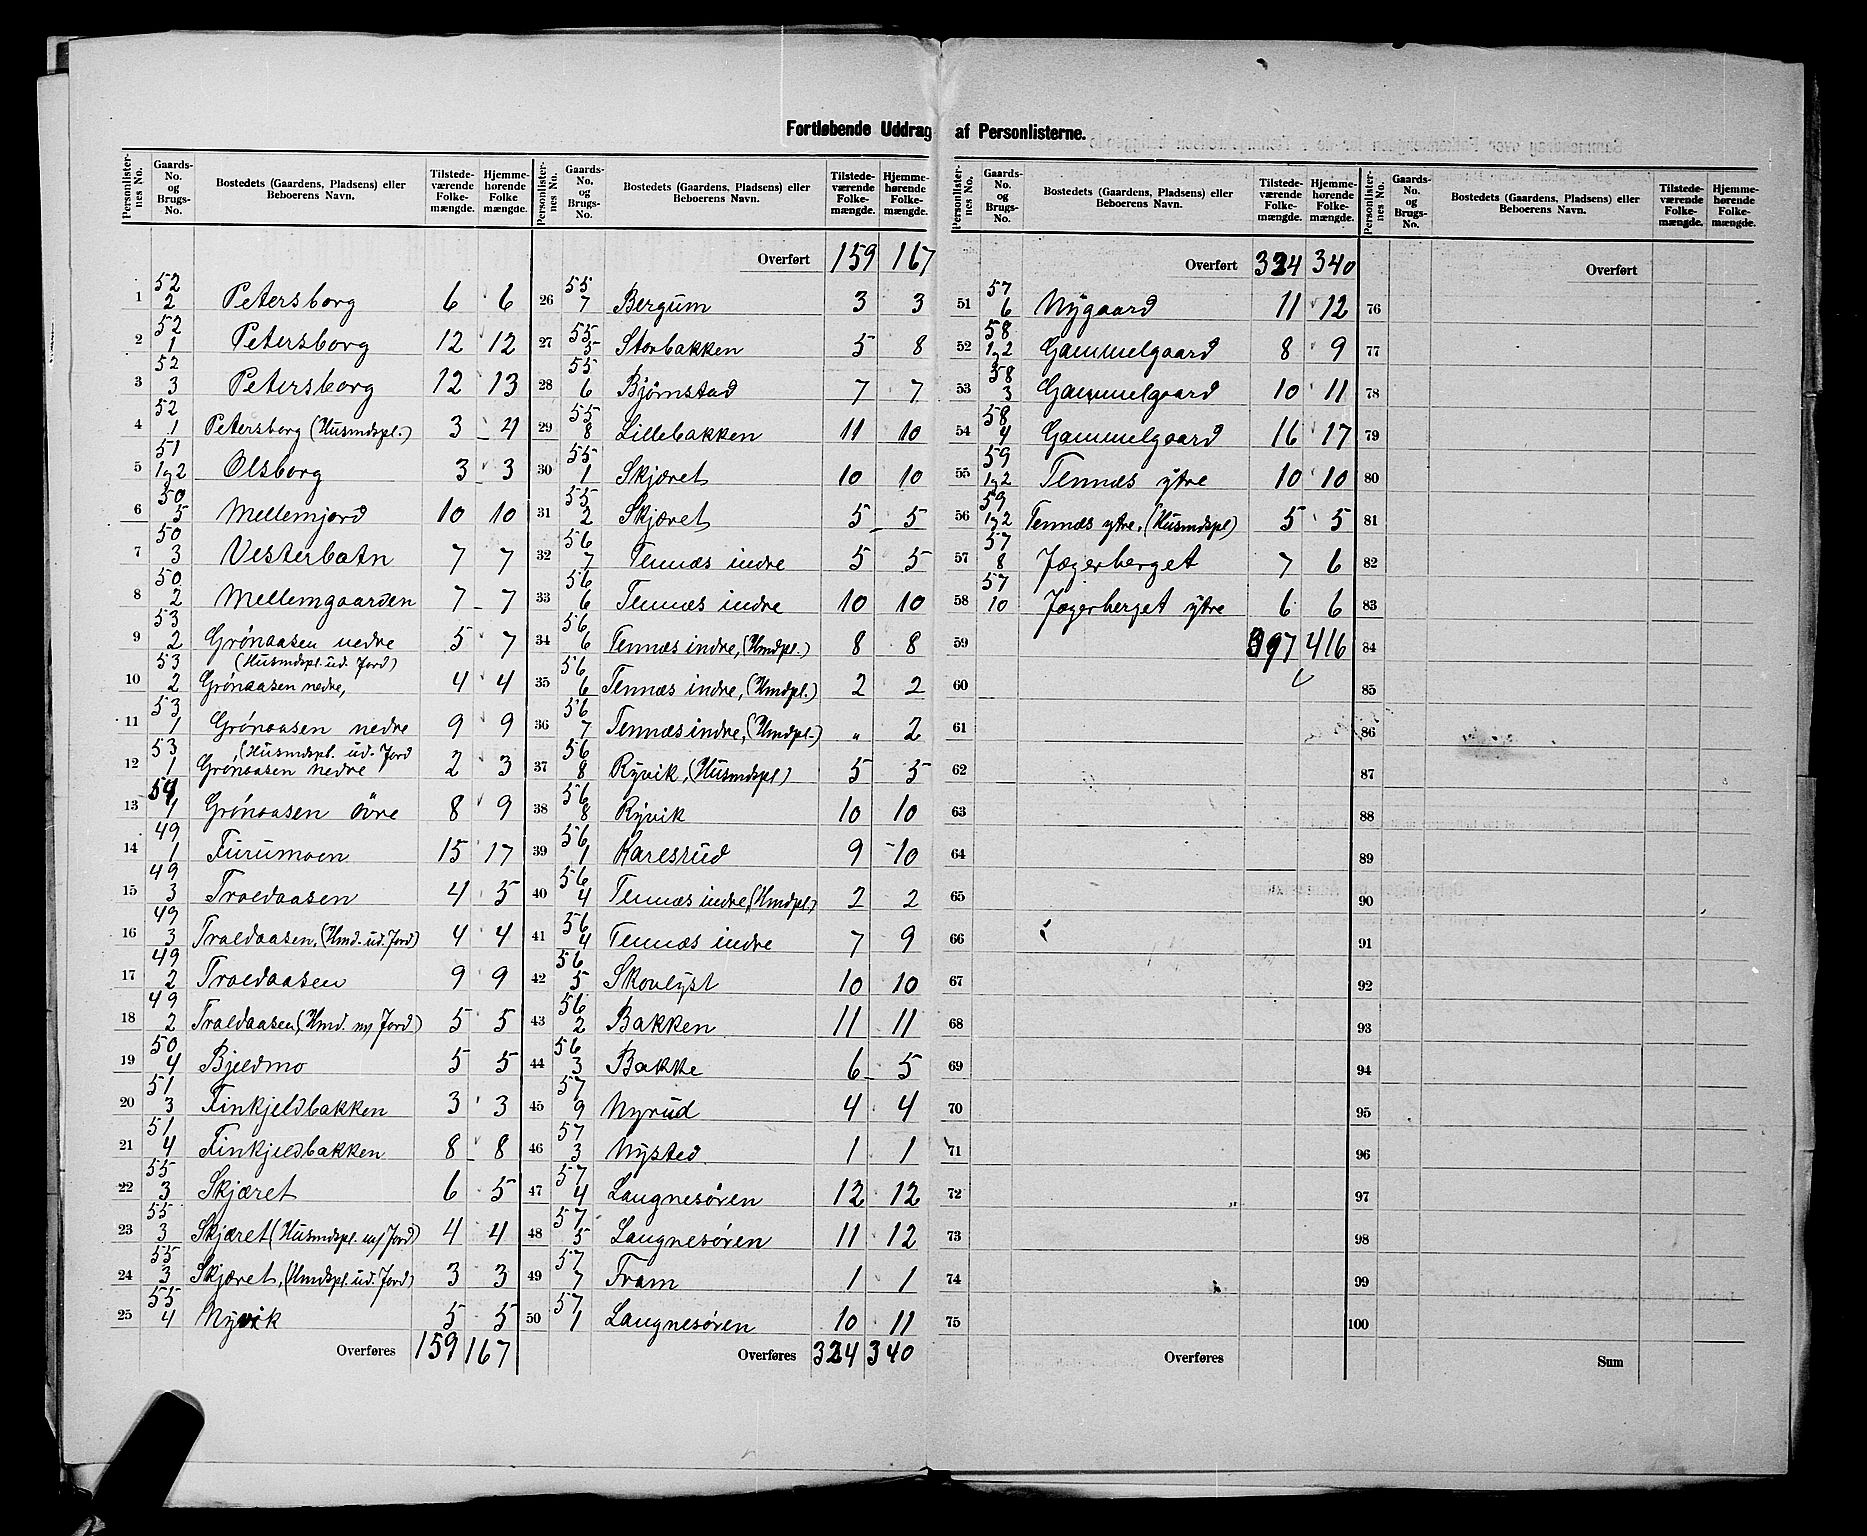 Fortløbende Uddrag af Personlisterne.
Personlister-nes No. | Gaards-No. og Brugs-No. | Bostedets (Gaardens, Pladsens) eller Beboerens Navn. | Tilstede-værende Folke-mængde. | Hjemme-hørende Folke mængde.
1 | 52 2 | Petersborg | 6 | 6
2 | 52 1 | Petersborg | 12 | 12
3 | 52 3 | Petersborg | 12 | 13
4 | 52 1 | Petersborg (Husmdspl.) | 3 | 4
5 | 51 1 og 2 | Olsborg | 3 | 3
6 | 50 5 | Mellemjord | 10 | 10
7 | 50 3 | Vesterbotn | 7 | 7
8 | 50 2 | Mellemgaarden | 7 | 7
9 | 53 2 | Grönaasen nedre | 5 | 7
10 | 53 2 | (Husmdspl. ud. Jord) Grönaasen nedre, | 4 | 4
11 | 53 1 | Grönaasen nedre | 9 | 9
12 | 53 1 | (Husmdspl. ud. Jord Grönaasen nedre | 2 | 3
13 | 54 1 | Grönaasen övre | 8 | 9
14 | 49 1 | Furumoen | 15 | 17
15 | 49 3 | Troldaasen | 4 | 5
16 | 49 3 | Troldaasen, (Hmd. ud. Jord) | 4 | 4
17 | 49 2 | Troldaasen | 9 | 9
18 | 49 2 | Troldaasen, (Hmd. m/ Jord) | 5 | 5
19 | 50 4 | Bjeldmo | 5 | 5
20 | 51 3 | Finkjeldbakken | 3 | 3
21 | 51 4 | Finkjeldbakken | 8 | 8
22 | 55 3 | Skjæret | 6 | 5
23 | 55 3 | Skjæret (Husmdspl. m/ Jord) | 4 | 4
24 | 55 3 | Skjæret, (Hmdspl. ud. Jord) | 3 | 3
25 | 55 4 | Nyvik | 5 | 5
Overføres 159 167
Personlister-nes No. | Gaards-No. og Brugs-No. | Bostedets (Gaardens, Pladsens) eller Beboerens Navn. | Tilstede-værende Folke-mængde. | Hjemme-hørende Folke-mængde.
Overført 159 167
26 | 55 7 | Bergum | 3 | 3
27 | 55 5 | Storbakken | 5 | 8
28 | 55 6 | Bjørnstad | 7 | 7
29 | 55 8 | Lillebakken | 11 | 10
30 | 55 1 | Skjæret | 10 | 10
31 | 55 2 | Skjæret | 5 | 5
32 | 56 7 | Tennæs indre | 5 | 5
33 | 56 6 | Tennæs indre | 10 | 10
34 | 56 6 | Tennæs indre, (Hmdpl.) | 8 | 8
35 | 56 6 | Tennæs indre, (Hmdpl.) | 2 | 2
36 | 56 7 | Tennæs indre, (Hmdpl.) | „ | 2
37 | 56 8 | Ryvik, (Husmdspl) | 5 | 5
38 | 56 8 | Ryvik | 10 | 10
39 | 56 1 | Karlsrud | 9 | 10
40 | 56 4 | Tennæs indre, (Hmdpl.) | 2 | 2
41 | 56 4 | Tennæs indre | 7 | 9
42 | 56 5 | Skovlyst | 10 | 10
43 | 56 2 | Bakken | 11 | 11
44 | 56 3 | Bakke | 6 | 5
45 | 57 9 | Nyrud | 4 | 4
46 | 57 3 | Nysted | 1 | 1
47 | 57 4 | Langnesören | 12 | 12
48 | 57 5 | Langnesören | 11 | 12
49 | 57 7 | Fram | 1 | 1
50 | 57 1 | Langnesören | 10 | 11
Overføres 324 340
Personlister-nes No. | Gaards-No. og Brugs-No. | Bostedets (Gaardens, Pladsens) eller Beboerens Navn. | Tilstede-værende Folke-mængde. | Hjemme-hørende Folke-mængde.
Overført 324 340
51 | 57 6 | Nygaard | 11 | 12
52 | 58 1 og 2 | Gammelgaard | 8 | 9
53 | 58 3 | Gammelgaard | 10 | 11
54 | 58 4 | Gammelgaard | 16 | 17
55 | 59 1 og 2 | Tennæs ytre | 10 | 10
56 | 59 1 og 2 | Tennæs ytre, (Husmdspl) | 5 | 5
57 | 57 8 | Jægerberget | 7 | 6
58 | 57 10 | Jægerberget ytre | 6 | 6
59 | 397 | 416
60
61
62
63
64
65
66
67
68
69
70
71
72
73
74
75
Overføres
Personlister-nes No. | Gaards-No. og Brugs-No. | Bostedets (Gaardens, Pladsens) eller Beboerens Navn. | Tilstede-værende Folke-mængde. | Hjemme-hørende Folke-mængde.
Overført
76
77
78
79
80
81
82
83
84
85
86
87
88
89
90
91
92
93
94
95
96
97
98
99
100
Sum